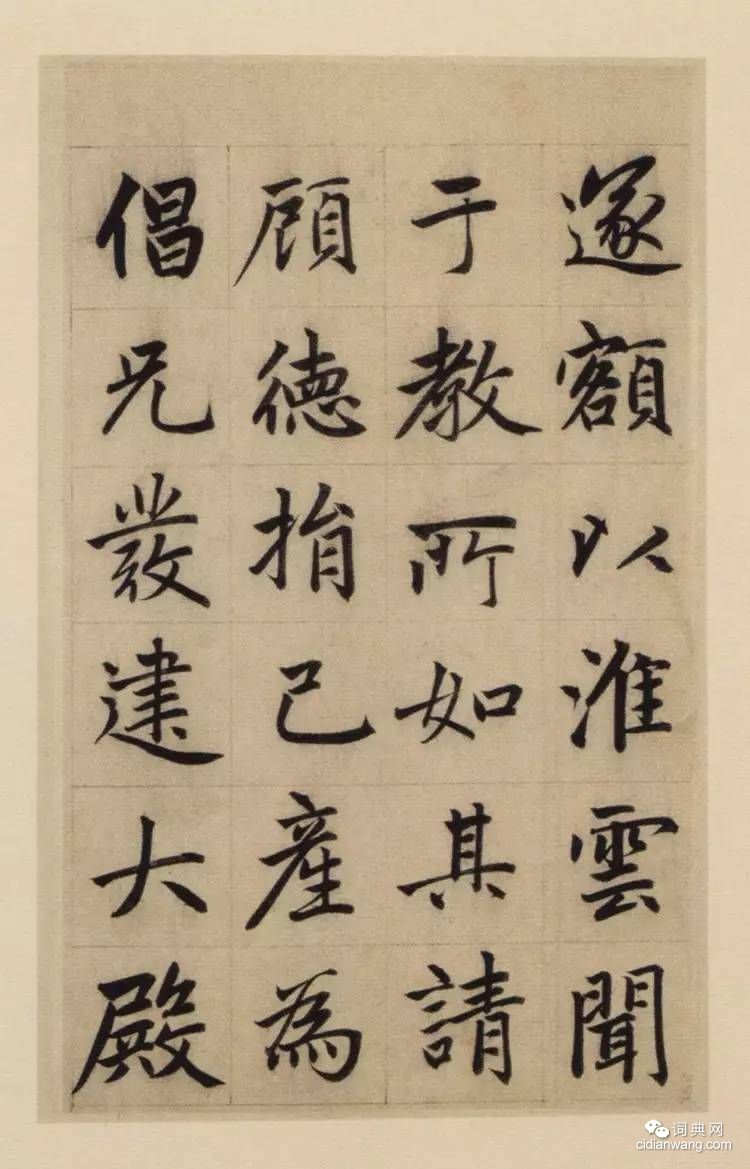 遂額以淮雲聞
于教所如其請
頋徳捐己産為
倡兄發建大殿
词典网
cidianwang.com